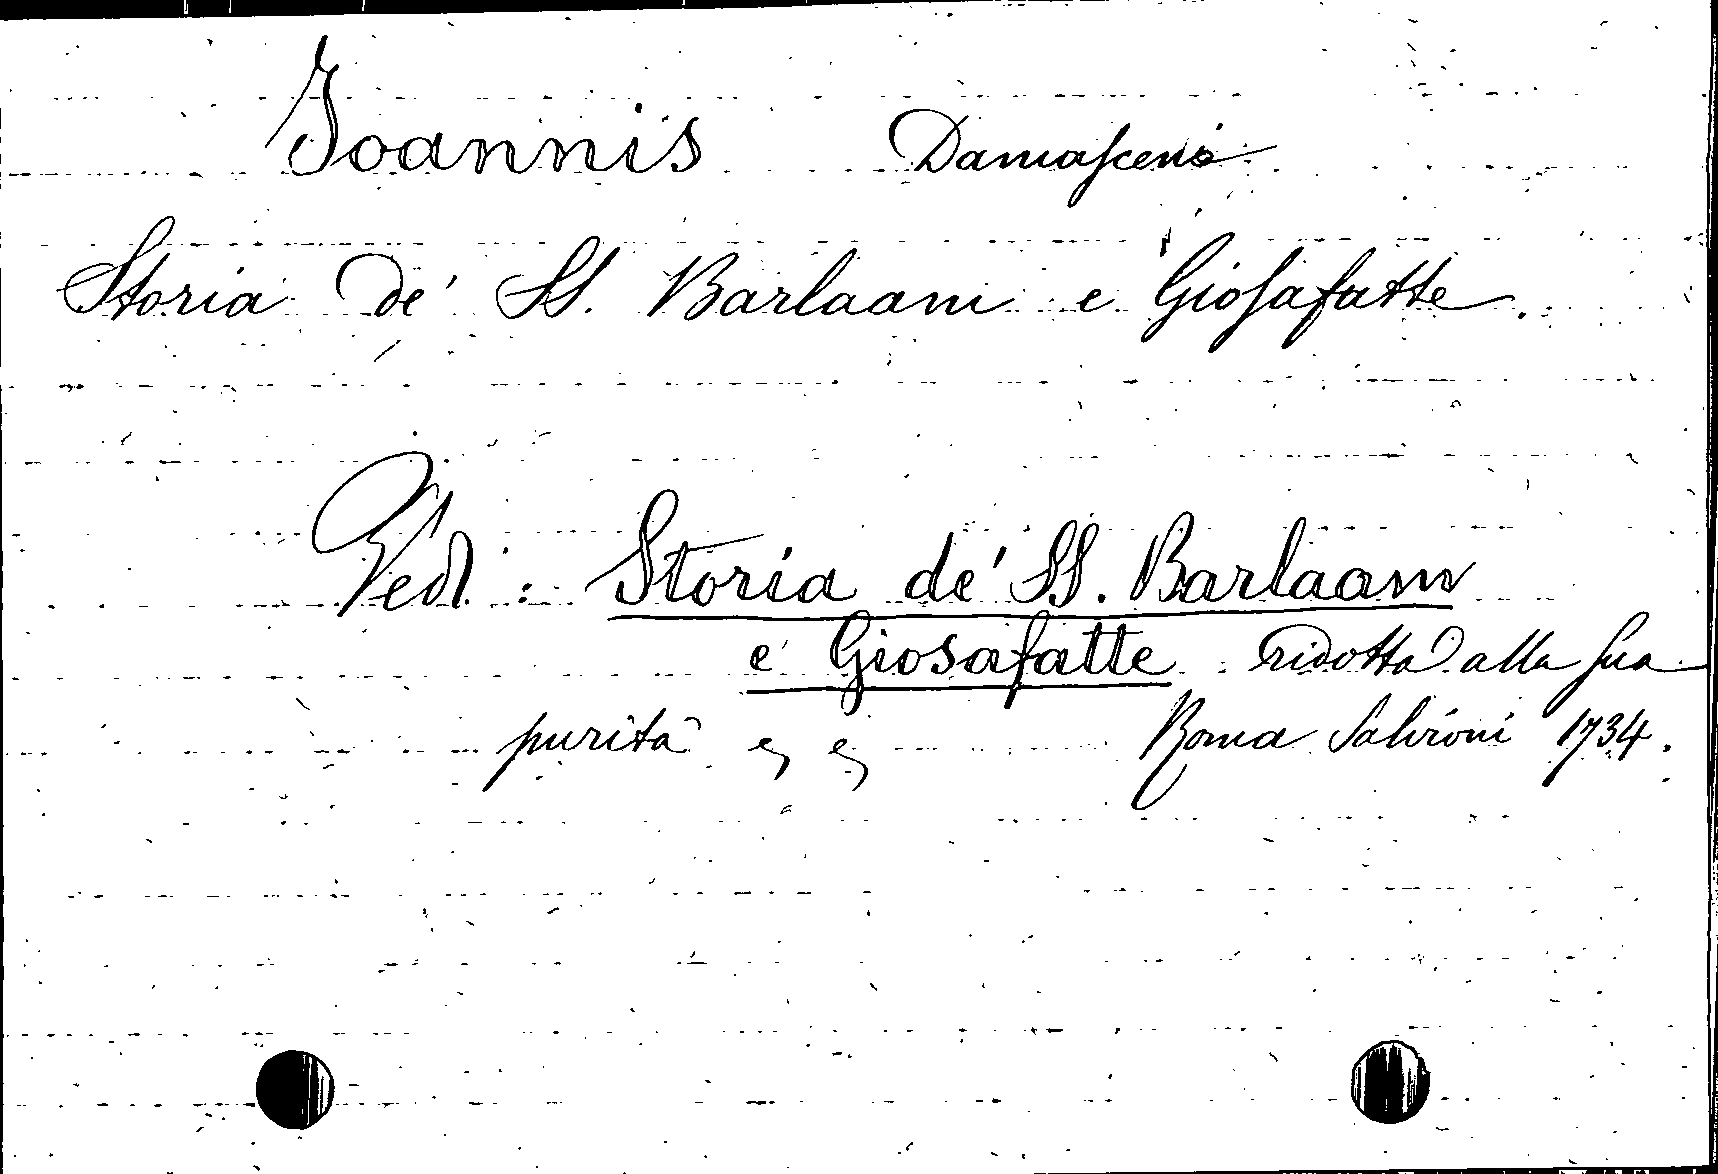 Joannis Damasceno
Storia de' SS. Barlaam e Giosafatte.
Vedi: Storia de' SS. Barlaam
e Giosafatte ridotta alla sua
purità
Roma Salvioni 1734.